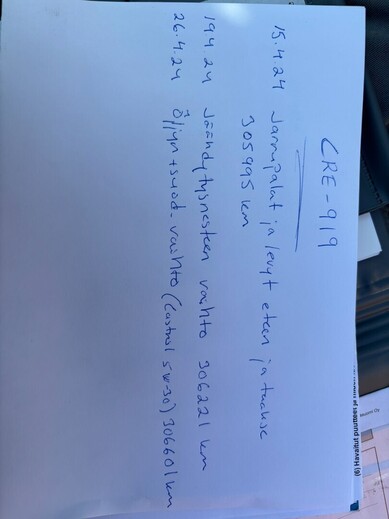 CRE-919
15.4.24 Jarrupalat ja levyt eteen ja taakse
305995 km
19.4.24 Jäähdytysnesteen vaihto 306221 km
26.4.24 Öljyn+suod. vaihto (Castrol 5W-30) 306601 km
(6) Havaitut puutteet ja